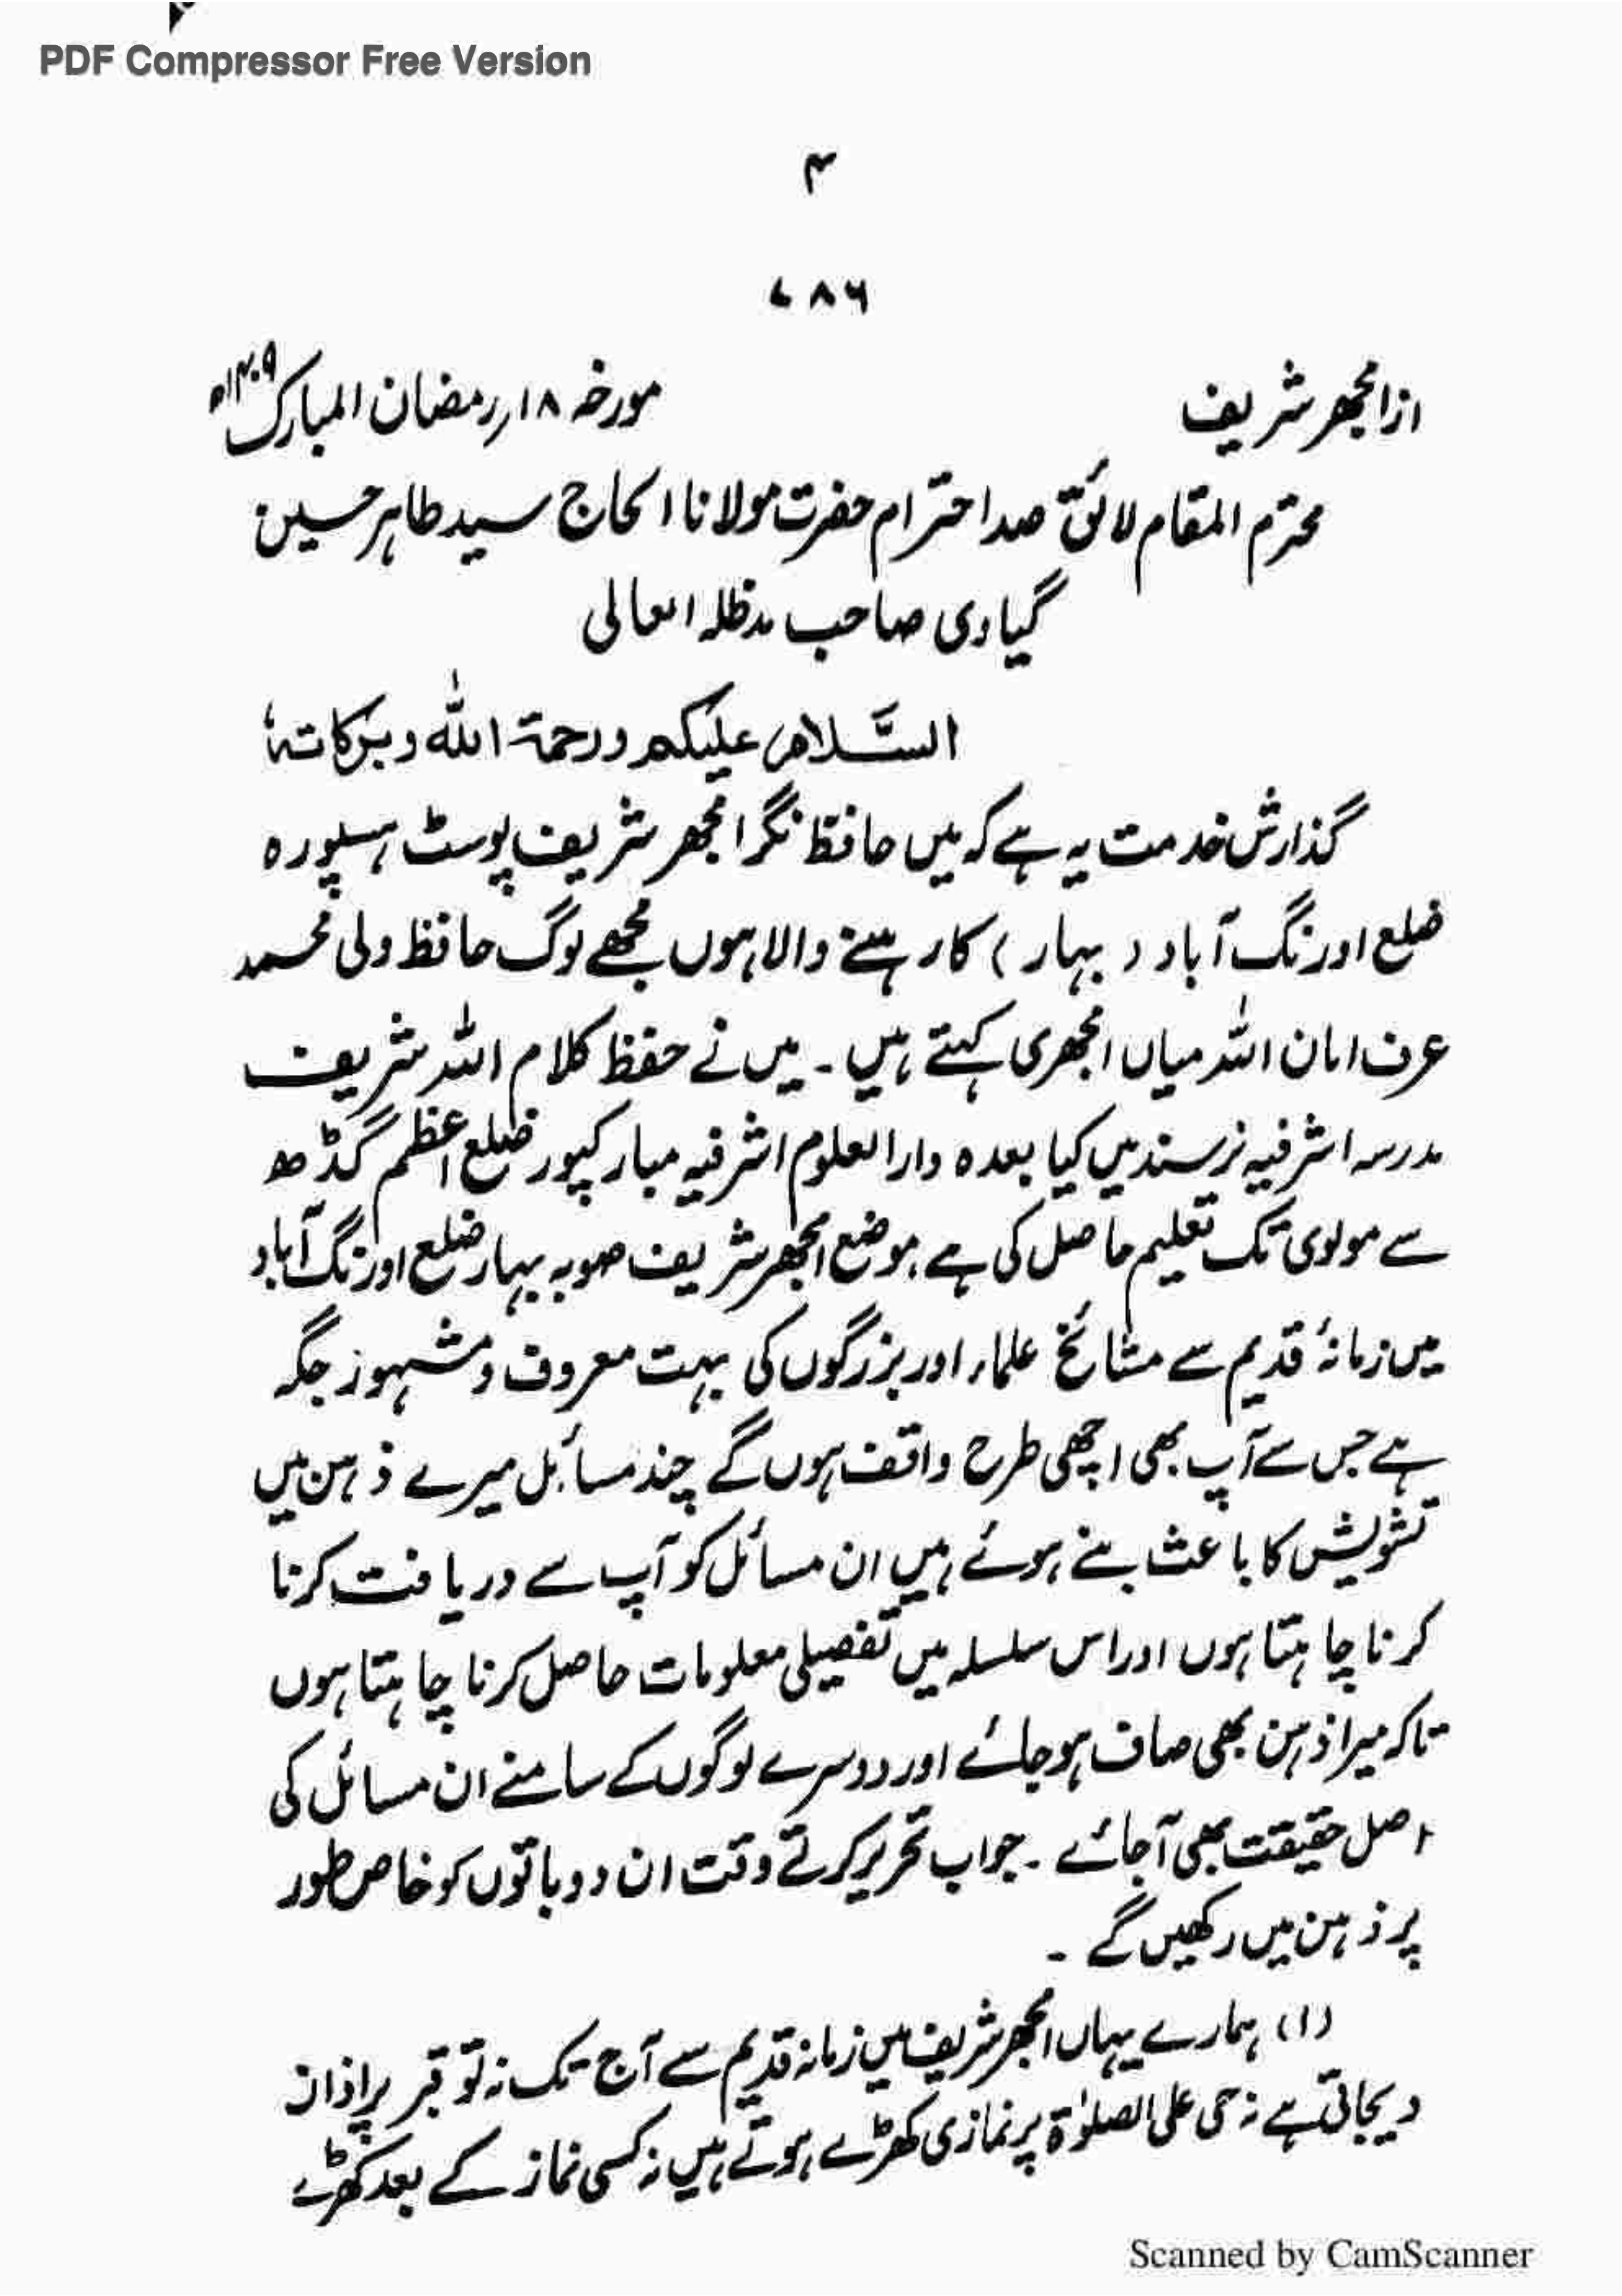 PDF Compressor Free Version
۴
۷۸۶
از امجھر شریف مورخہ ۱۸؍رمضان المبارک ۱۴۰۹ھ
محترم المقام لائق صد احترام حضرت مولانا الحاج سید طاہر حسین
گیاوی صاحب مدظلہ العالی
السَّلام علیکم ورحمۃ اللہ وبرکاتہٗ
گذارش خدمت یہ ہے کہ میں حافظ نگر امجھر شریف پوسٹ ہسپورہ
ضلع اورنگ آباد (بہار) کا رہنے والا ہوں مجھے لوگ حافظ ولی محمد
عرف امان اللہ میاں امجھری کہتے ہیں۔ میں نے حفظ کلام اللہ شریف
مدرسہ اشرفیہ نرسند میں کیا بعدہ دارالعلوم اشرفیہ مبارکپور ضلع اعظم گڈھ
سے مولوی تک تعلیم حاصل کی ہے۔ موضع امجھر شریف صوبہ بہار ضلع اورنگ آباد
میں زمانۂ قدیم سے مشائخ علماء اور بزرگوں کی بہت معروف و مشہور جگہ
ہے جس سے آپ بھی اچھی طرح واقف ہوں گے چند مسائل میرے ذہن میں
تشویش کا باعث بنے ہوئے ہیں ان مسائل کو آپ سے دریافت کرنا
کرنا چاہتا ہوں اور اس سلسلہ میں تفصیلی معلومات حاصل کرنا چاہتا ہوں
تاکہ میرا ذہن بھی صاف ہوجائے اور دوسرے لوگوں کے سامنے ان مسائل کی
اصل حقیقت بھی آجائے۔ جواب تحریر کرتے وقت ان دو باتوں کو خاص طور
پر ذہن میں رکھیں گے۔
(۱) ہمارے یہاں امجھر شریف میں زمانہ قدیم سے آج تک نہ تو قبر پر اذان
دیجاتی ہے نہ حی علی الصلوٰۃ پر نمازی کھڑے ہوتے ہیں نہ کسی نماز کے بعد کھڑے
Scanned by CamScanner